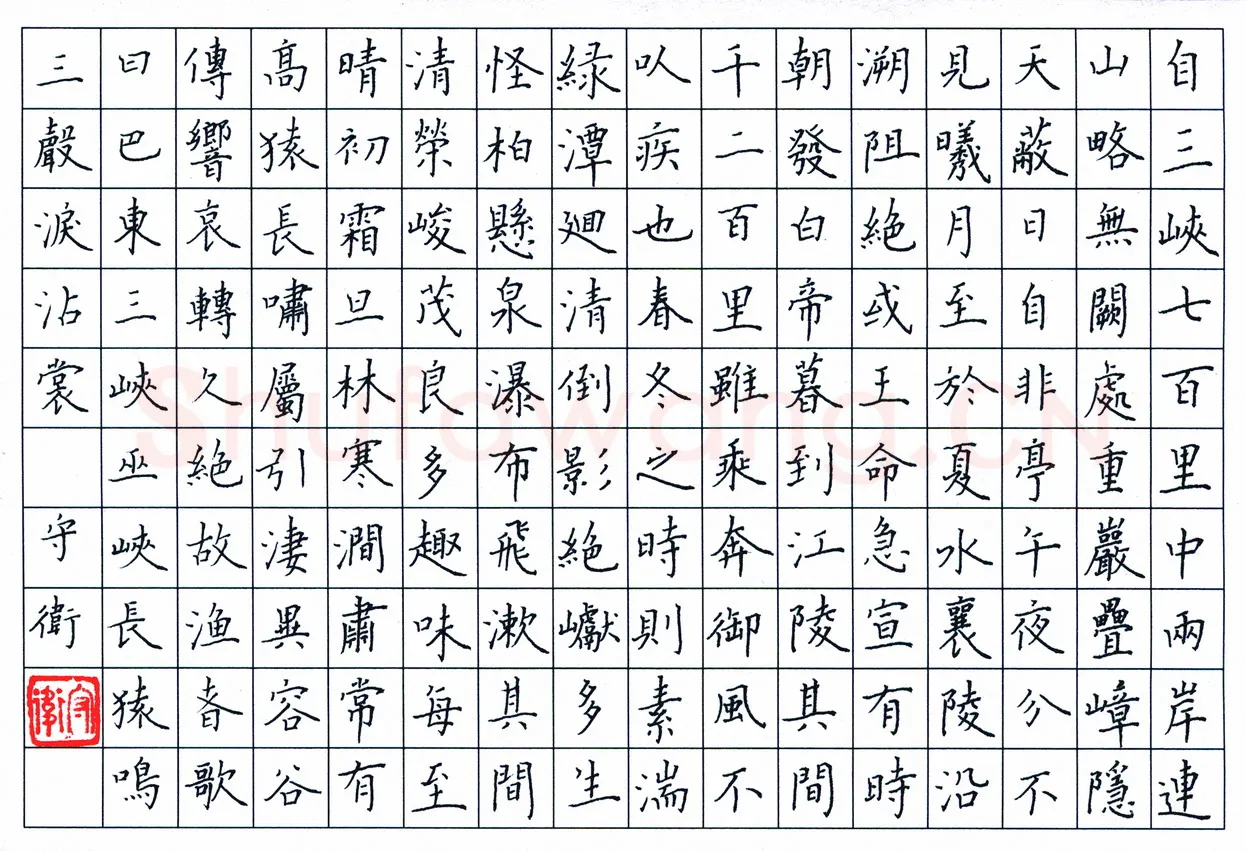 自三峽七百里中兩岸連
山略無闕處重巖疊嶂隱
天蔽日自非亭午夜分不
見曦月至於夏水襄陵沿
溯阻絶或王命急宣有時
朝發白帝暮到江陵其間
千二百里雖乘奔御風不
以疾也春冬之時則素湍
緑潭廻清倒影絶巘多生
怪柏懸泉瀑布飛漱其間
清榮峻茂良多趣味每至
晴初霜旦林寒澗肅常有
髙猿長嘯屬引淒異容谷
傳響哀轉久絶故漁者歌
曰巴東三峽巫峽長猿鳴
三聲淚沾裳 守衛
守衛
Shufawang.CN